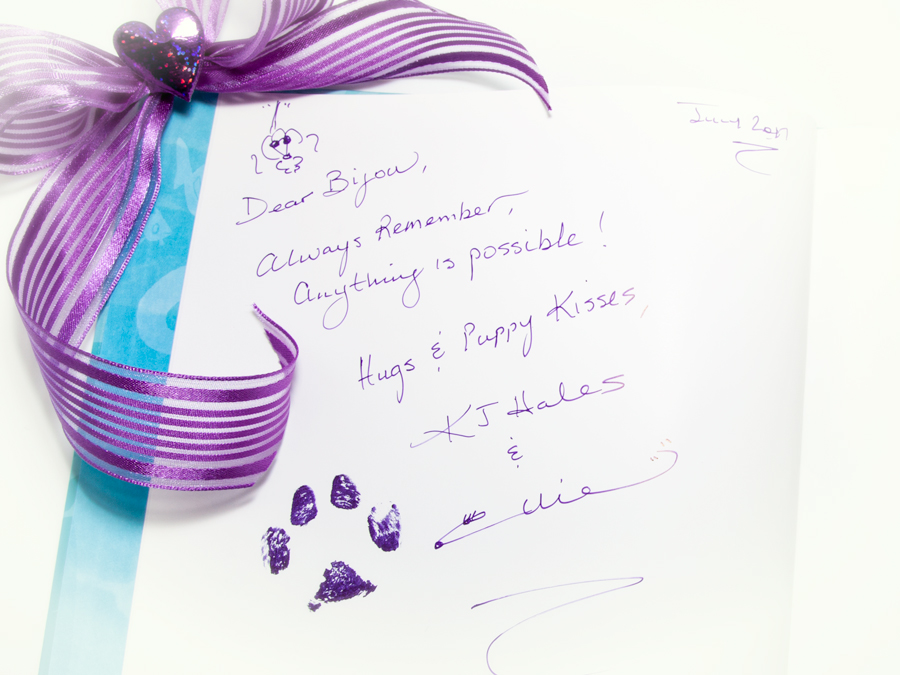 2017
Dear Bijou,
Always Remember,
Anything is possible!
Hugs & Puppy Kisses,
KJ Hales
&
Ellie